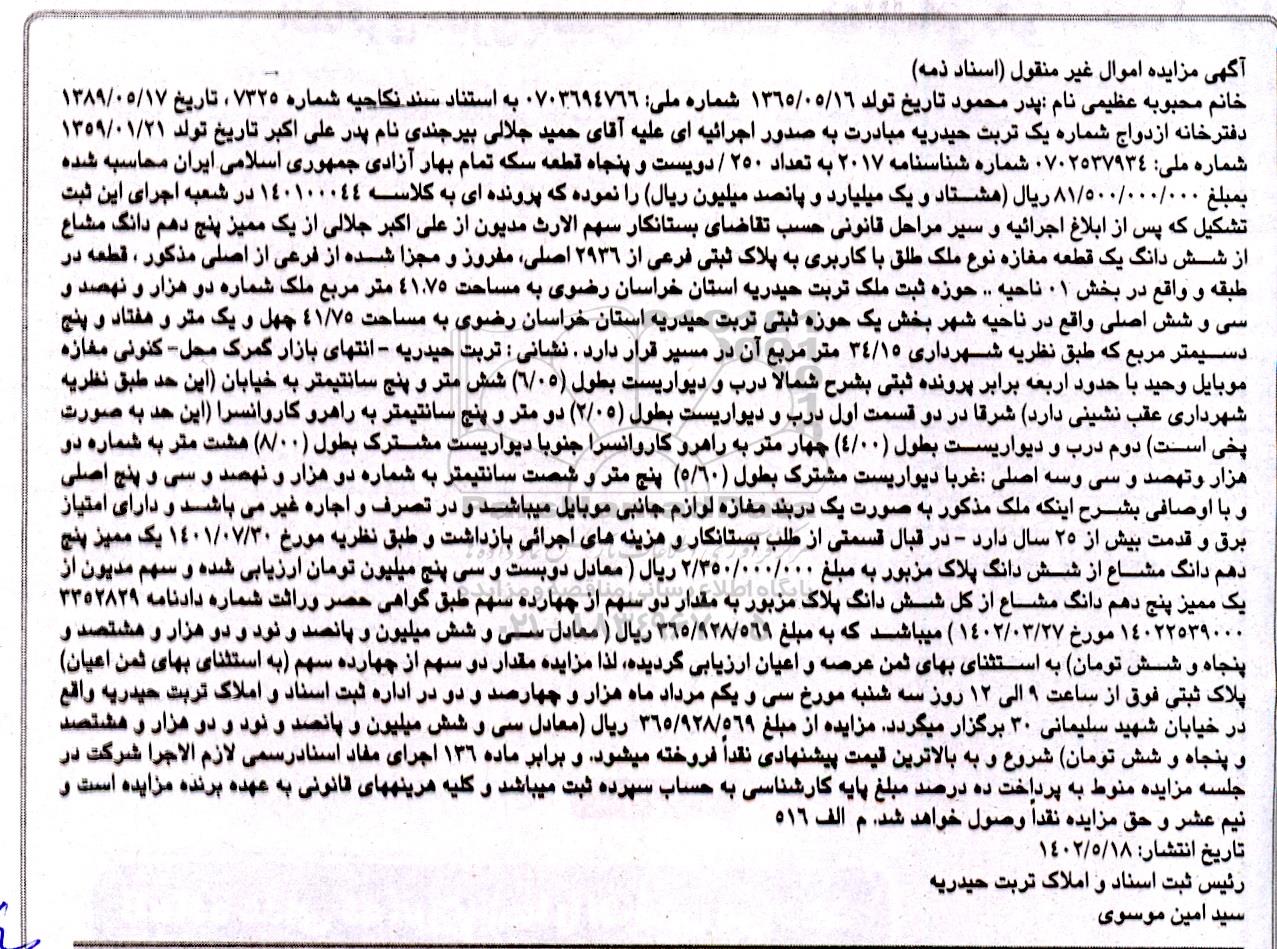 آگهی مزایده اموال غیر منقول (اسناد ذمه)
خانم محبوبه عظیمی نام :پدر محمود تاریخ تولد ۱۳۶۵/۰۵/۱۶ شماره ملی: ۰۷۰۳۶۹۴۷۶۶ به استناد سند نکاحیه شماره ۷۳۲۵ ، تاریخ ۱۳۸۹/۰۵/۱۷
دفترخانه ازدواج شماره یک تربت حیدریه مبادرت به صدور اجرائیه ای علیه آقای حمید جلالی بیرجندی نام پدر علی اکبر تاریخ تولد ۱۳۵۹/۰۱/۲۱
شماره ملی: ۰۷۰۲۵۳۷۹۳۴ شماره شناسنامه ۲۰۱۷ به تعداد ۲۵۰ / دویست و پنجاه قطعه سکه تمام بهار آزادی جمهوری اسلامی ایران محاسبه شده
بمبلغ ۸۱/۵۰۰/۰۰۰/۰۰۰ ریال (هشتاد و یک میلیارد و پانصد میلیون ریال) را نموده که پرونده ای به کلاسه ۱۴۰۱۰۰۰۴۴ در شعبه اجرای این ثبت
تشکیل که پس از ابلاغ اجرائیه و سیر مراحل قانونی حسب تقاضای بستانکار سهم الارث مدیون از علی اکبر جلالی از یک ممیز پنج دهم دانگ مشاع
از شش دانگ یک قطعه مغازه نوع ملک طلق با کاربری به پلاک ثبتی فرعی از ۲۹۳۶ اصلی، مفروز و مجزا شده از فرعی از اصلی مذکور ، قطعه در
طبقه و واقع در بخش ۰۱ ناحیه .. حوزه ثبت ملک تربت حیدریه استان خراسان رضوی به مساحت ۴۱.۷۵ متر مربع ملک شماره دو هزار و نهصد و
سی و شش اصلی واقع در ناحیه شهر بخش یک حوزه ثبتی تربت حیدریه استان خراسان رضوی به مساحت ۴۱/۷۵ چهل و یک متر و هفتاد و پنج
دسیمتر مربع که طبق نظریه شهرداری ۳۴/۱۵ متر مربع آن در مسیر قرار دارد . نشانی : تربت حیدریه - انتهای بازار گمرک محل- کنونی مغازه
موبایل وحید با حدود اربعه برابر پرونده ثبتی بشرح شمالا درب و دیواریست بطول (۶/۰۵) شش متر و پنج سانتیمتر به خیابان (این حد طبق نظریه
شهرداری عقب نشینی دارد) شرقا در دو قسمت اول درب و دیواریست بطول (۲/۰۵) دو متر و پنج سانتیمتر به راهرو کاروانسرا (این حد به صورت
پخی است) دوم درب و دیواریست بطول (۴/۰۰) چهار متر به راهرو کاروانسرا جنوبا دیواریست مشترک بطول (۸/۰۰) هشت متر به شماره دو
هزار وتهصد و سی وسه اصلی :غربا دیواریست مشترک بطول (۵/۶۰) پنج متر و شصت سانتیمتر به شماره دو هزار و نهصد و سی و پنج اصلی
و با اوصافی بشرح اینکه ملک مذکور به صورت یک دربند مغازه لوازم جانبی موبایل میباشد و در تصرف و اجاره غیر می باشد و دارای امتیاز
برق و قدمت بیش از ۲۵ سال دارد - در قبال قسمتی از طلب بستانکار و هزینه های اجرائی بازداشت و طبق نظریه مورخ ۱۴۰۱/۰۷/۳۰ یک ممیز پنج
دهم دانگ مشاع از شش دانگ پلاک مزبور به مبلغ ۲/۳۵۰/۰۰۰/۰۰۰ ریال ( معادل دوبست و سی پنج میلیون تومان ارزیابی شده و سهم مدیون از
یک ممیز پنج دهم دانگ مشاع از کل شش دانگ پلاک مزبور به مقدار دو سهم از چهارده سهم طبق گواهی حصر وراثت شماره دادنامه ۳۳۵۲۸۲۹
۱۴۰۲۲۵۳۹۰۰۰ مورخ ۱۴۰۲/۰۳/۲۷ ) میباشد که به مبلغ ۳۶۵/۹۲۸/۵۶۹ ریال ( معادل سی و شش میلیون و پانصد و نود و دو هزار و هشتصد و
پنجاه و شش تومان) به استثنای بهای ثمن عرصه و اعیان ارزیابی گردیده، لذا مزایده مقدار دو سهم از چهارده سهم (به استثنای بهای ثمن اعیان)
پلاک ثبتی فوق از ساعت ۹ الی ۱۲ روز سه شنبه مورخ سی و یکم مرداد ماه هزار و چهارصد و دو در اداره ثبت اسناد و املاک تربت حیدریه واقع
در خیابان شهید سلیمانی ۳۰ برگزار میگردد. مزایده از مبلغ ۳۶۵/۹۲۸/۵۶۹ ریال (معادل سی و شش میلیون و پانصد و نود و دو هزار و هشتصد
و پنجاه و شش تومان) شروع و به بالاترین قیمت پیشنهادی نقداً فروخته میشود. و برابر ماده ۱۳۶ اجرای مفاد اسنادرسمی لازم الاجرا شرکت در
جلسه مزایده منوط به پرداخت ده درصد مبلغ پایه کارشناسی به حساب سپرده ثبت میباشد و کلیه هرینههای قانونی به عهده برنده مزایده است و
نیم عشر و حق مزایده نقداً وصول خواهد شد. م الف ۵۱۶
تاریخ انتشار: ۱۴۰۲/۵/۱۸
رئیس ثبت اسناد و املاک تربت حیدریه
سید امین موسوی